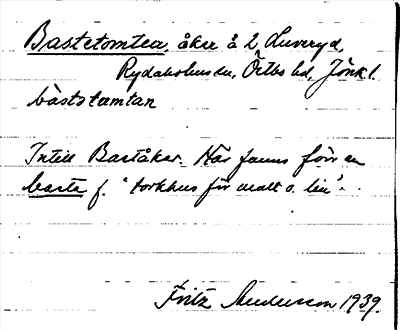 Bastetomten, åker å 2 Luveryd,
Rydaholms sn, Östbo hd, Jönk l.
bàstotämtan
Intill Baståker. Här fanns förr en
basta f. "torkhus för malt o. lin".
Fritz Andersson 1939.